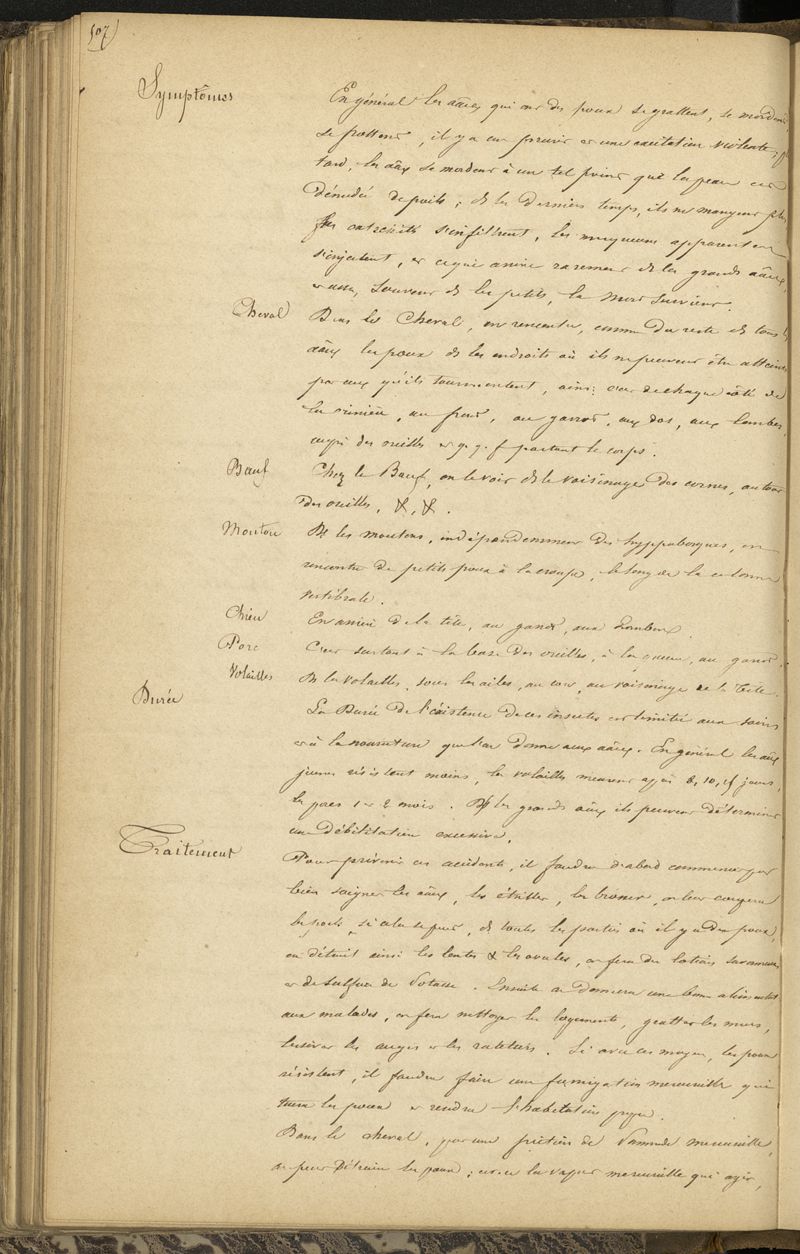 507
Symptômes
En général les aâux qui ont des poux se grattent, se mordent,
se frottent, il y a un prurit et une excitation violente,
tard, les aâux se mordent à un tel point que la peau est
dénudée de poils ; ds les derniers temps, ils ne mangent plus
les extrémités s'infiltrent, les muqueuses apparentes
s'injectent, et ce qui arrive rarement ds les grands aâux,
et assez souvent ds les petits, la mort survient.
Cheval
Dans le Cheval, on rencontre, comme du reste ds tous les
aâux les poux ds les endroits où ils ne peuvent être atteints
par ceux qu'ils tourmentent, ainsi c'est de chaque côté de
la crinière, au front, au garrot, aux dos, aux lombes,
auprès des oreilles et q.q.f partout le corps.
Bœuf
Chez le Bœuf, on le voit ds le voisinage des cornes, autour
des oreilles, &, &.
Mouton
Ds les moutons, indépendemment des hyppobosques, on
rencontre de petits poux à la croupe, le long de la colonne
vertébrale.
Chien
En arrière de la tête, au garrot, aux lombes.
Porc
C'est surtout à la base des oreilles, à la queue, au garrot.
Volailles
Ds les volailles, sous les ailes, au cou, au voisinage de la tête.
Durée
La Durée de l'existence de ces insectes est limitée aux soins
et à la nourriture que l'on donne aux aâux. En général les aâux
jeunes résistent moins, les volailles meurent après 8, 10, 15 jours,
les porcs 1 et 2 mois. Ds les grands aâux ils peuvent déterminer
une débilitation excessive.
Traitement
Pour prévenir ces accidents, il faudra d'abord commencer par
bien soigner les aâux, les étriller, les brosser, on leur coupera
les poils, si cela se peut, ds toutes les parties où il y a des poux,
on détruit ainsi les lentes & les ovules, on fera des lotions savonneuses
et de sulfure de Potasse. Ensuite on donnera une bonne alimentation
aux malades, on fera nettoyer les logements, gratter les murs,
lessiver les auges et les rateliers. Si avec ces moyens, les poux
résistent, il faudra faire une fumigation mercurielle qui
tuera les poux et rendra l'habitation propre.
Dans le cheval, par une friction de Pommade mercurielle,
on peut détruire les poux ; c'est la vapeur mercurielle qui agit,